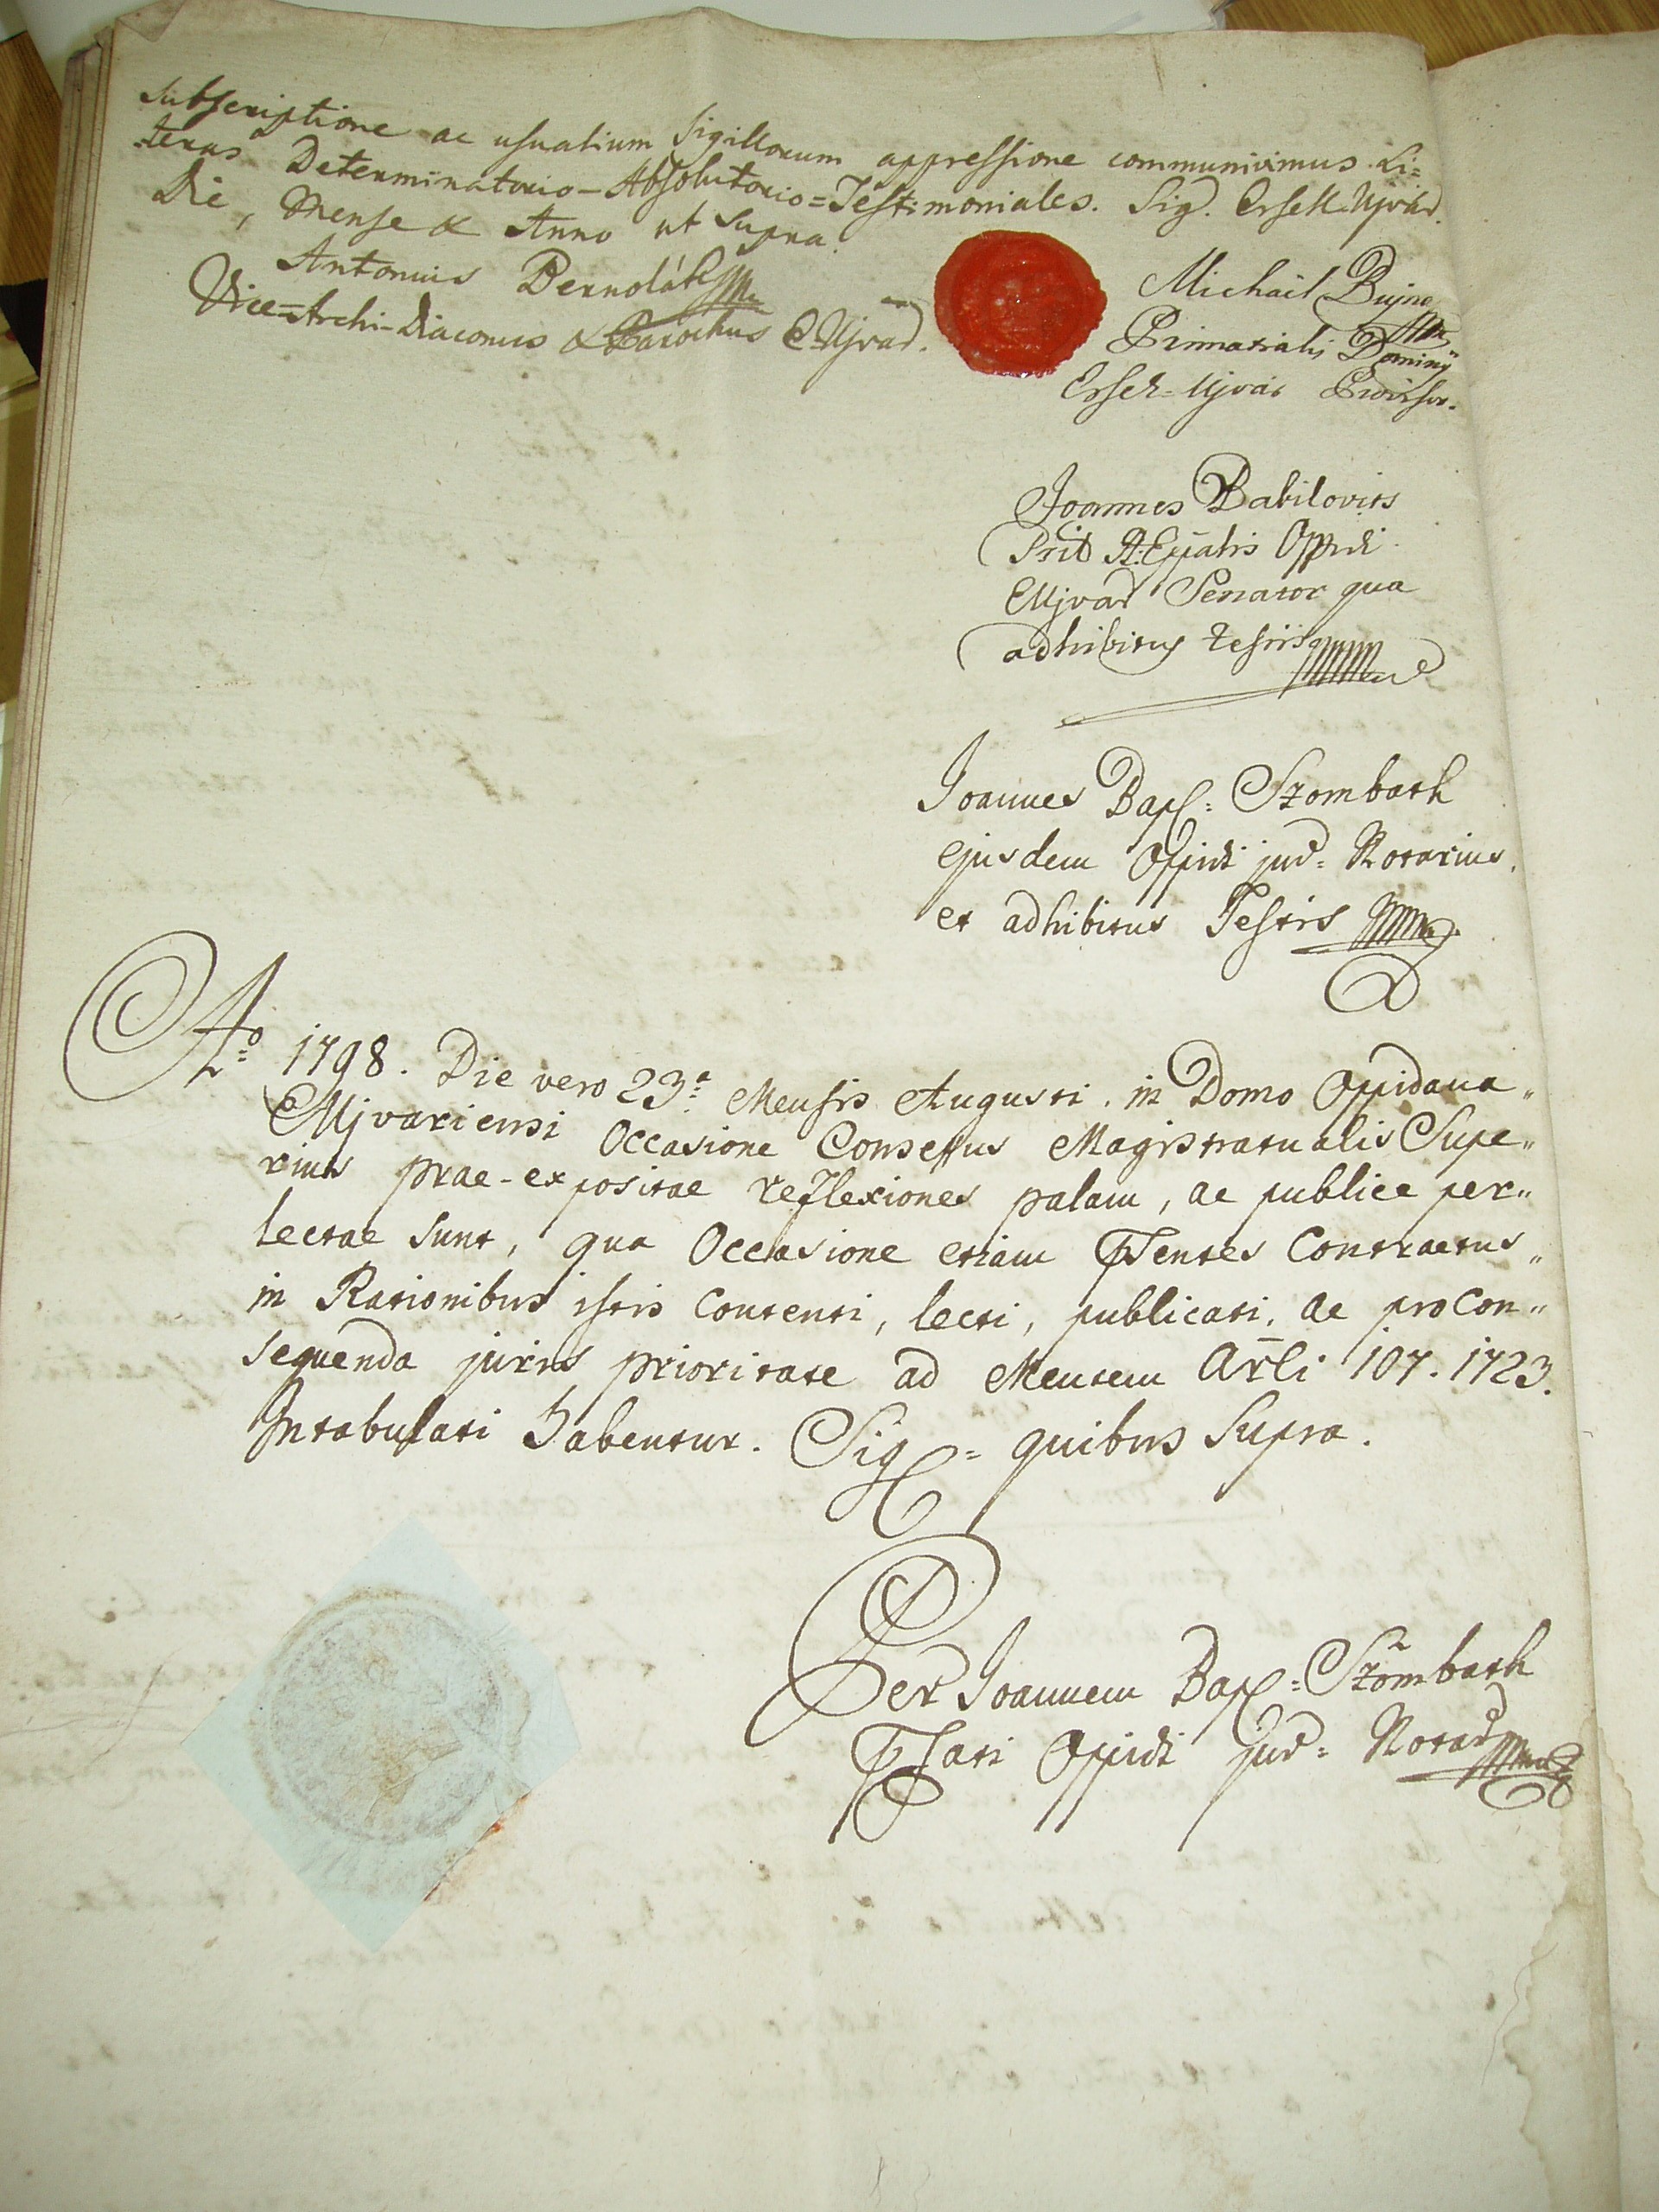 subscriptione ac usualium Sigillorum appressione communivimus Li=
teras Determinatorio-Absolutorio=Testimoniales. Sig. Ersek-Ujvár.
Die, Mense & Anno ut supra.
Antonius Bernolák
Vice=Archi-Diaconus & Parochus E.Ujvár.
Michaël Bujna
Primatialis Dominÿ
Ersek-Ujvár Provisor.
Joannes Babilovits
Oppidi
EUjvár Senator qua
adhibitus testis
Joannes Bap: Szombath
ejusdem Oppidi jur= Notarius.
et adhibitus Testis
Ao 1798. Die vero 23a Mensis Augusti. in Domo Oppidana„
EUjvariensi Occasione Consessus Magistratualis Supe„
rius prae-expositae reflexiones palam, ac publice per„
lectae sunt, qua Occasione etiam Contractus„
in Rationibus istis Contenti, lecti, publicati, ac pro Con„
sequenda juris prioritate ad Mentem Arli 107. 1723.
Intabulati habentur. Sig= quibus Supra.
Per Joannem Bap: Szombath
Oppidi jur= Notar